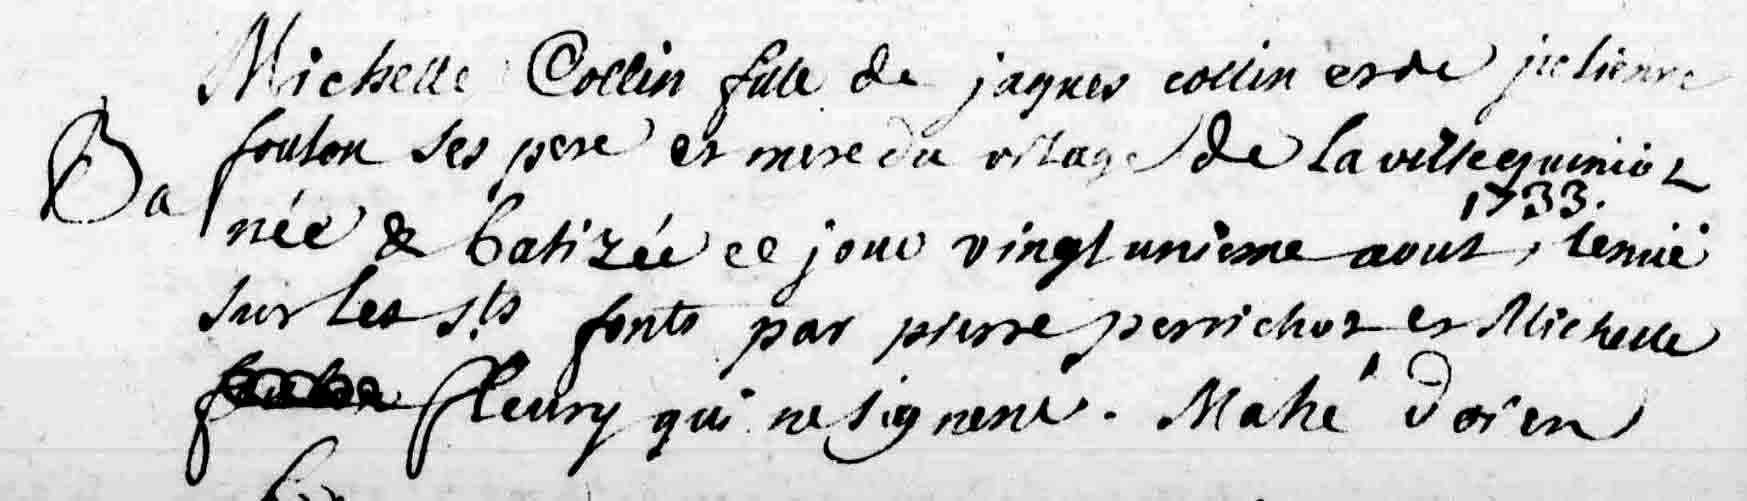 Michelle Collin fille de jaques collin et de julienne
Ba foulon ses pere et mere du village de La ville quiniot
1733.
née & batizée ce jour vingt unieme aout, tenüe
sur les sts fonts par pierre perrichot et Michelle
fleury qui ne signent. Mahé doien